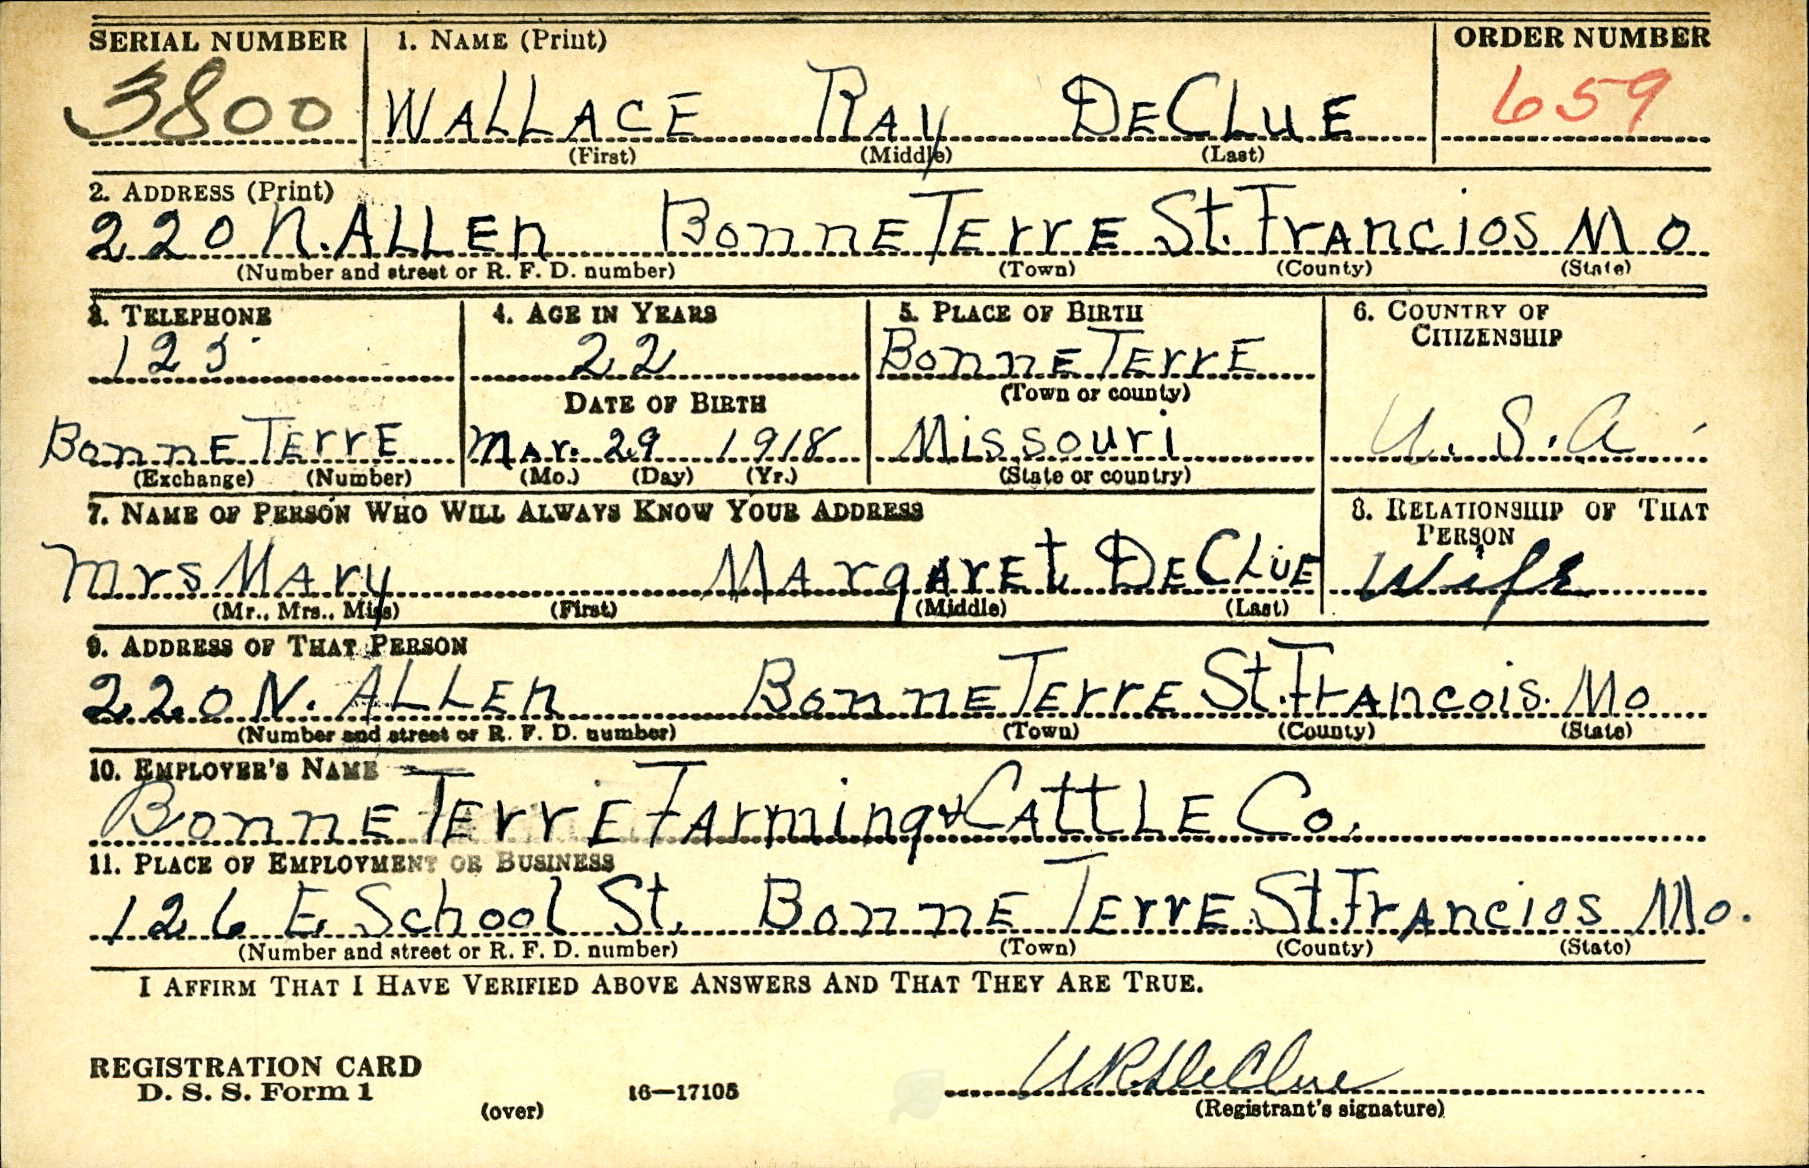 SERIAL NUMBER 1. NAME (Print) ORDER NUMBER
3800 WALLACE RAY DECLUE 659
(First) (Middle) (Last)
2. ADDRESS (Print)
220 N. ALLEN BONNE TERRE St. FRANCIOS MO
(Number and street or R. F. D. number) (Town) (County) (State)
3. TELEPHONE 4. AGE IN YEARS 5. PLACE OF BIRTH 6. COUNTRY OF CITIZENSHIP
22 BONNE TERRE
DATE OF BIRTH (Town or county)
BONNE TERRE MAR. 29 1918 MISSOURI U. S. A
(Exchange) (Number) (Mo.) (Day) (Yr.) (State or country)
7. NAME OF PERSON WHO WILL ALWAYS KNOW YOUR ADDRESS 8. RELATIONSHIP OF THAT PERSON
Mrs MARY MARGARET DECLUE Wife
(Mr., Mrs., Miss) (First) (Middle) (Last)
9. ADDRESS OF THAT PERSON
220 N. ALLEN BONNE TERRE St. FRANCOIS. MO
(Number and street or R. F. D. number) (Town) (County) (State)
10. EMPLOYER'S NAME
BONNE TERRE FARMING & CATTLE CO.
11. PLACE OF EMPLOYMENT OR BUSINESS
126 E. School St. BONNE TERRE St. FRANCIOS MO.
(Number and street or R. F. D. number) (Town) (County) (State)
I AFFIRM THAT I HAVE VERIFIED ABOVE ANSWERS AND THAT THEY ARE TRUE.
REGISTRATION CARD
D. S. S. Form 1 16—17105 W R DeClue
(over) (Registrant's signature)